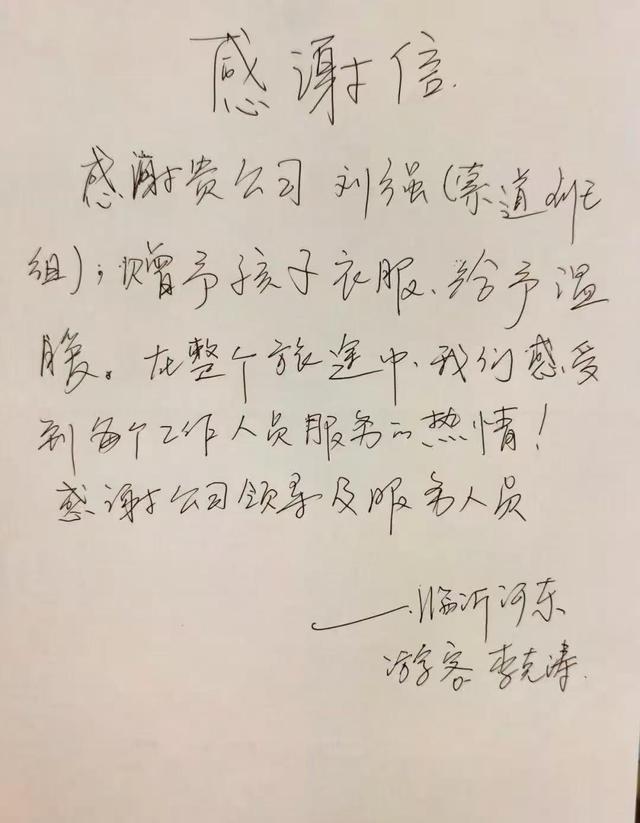 感谢信
感谢贵公司 刘强(索道
组),赠予孩子衣服、给予温
暖。在整个旅途中、我们感受
到每个工作人员服务的热情!
感谢公司领导及服务人员
——临沂河东
游客 李克涛